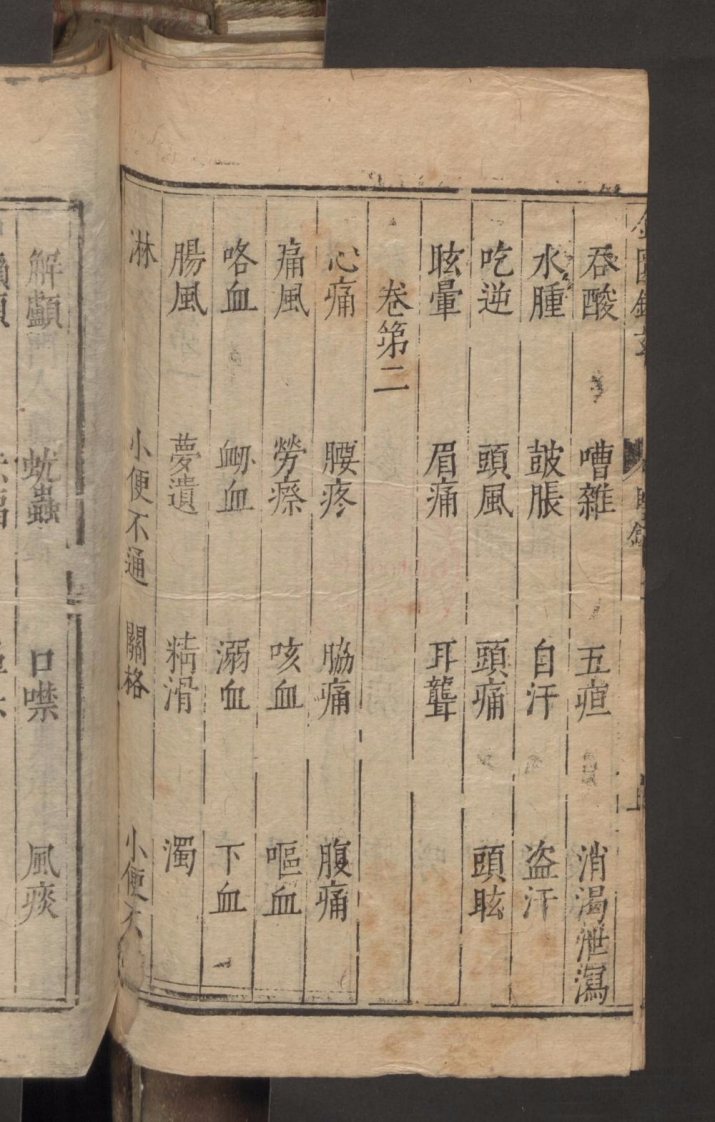 吞酸 嘈雜 五疸 消渴泄瀉
水腫 皷脹 自汗 盗汗
吃逆 頭風 頭痛 頭眩
眩暈 眉痛 耳聾
卷第二
心痛 腰疼 脇痛 腹痛
痛風 勞瘵 咳血 嘔血
咯血 衂血 溺血 下血
腸風 夢遺 精滑 濁
淋 小便不通 關格 小便不
解顱 蚘蟲 口噤 風痰